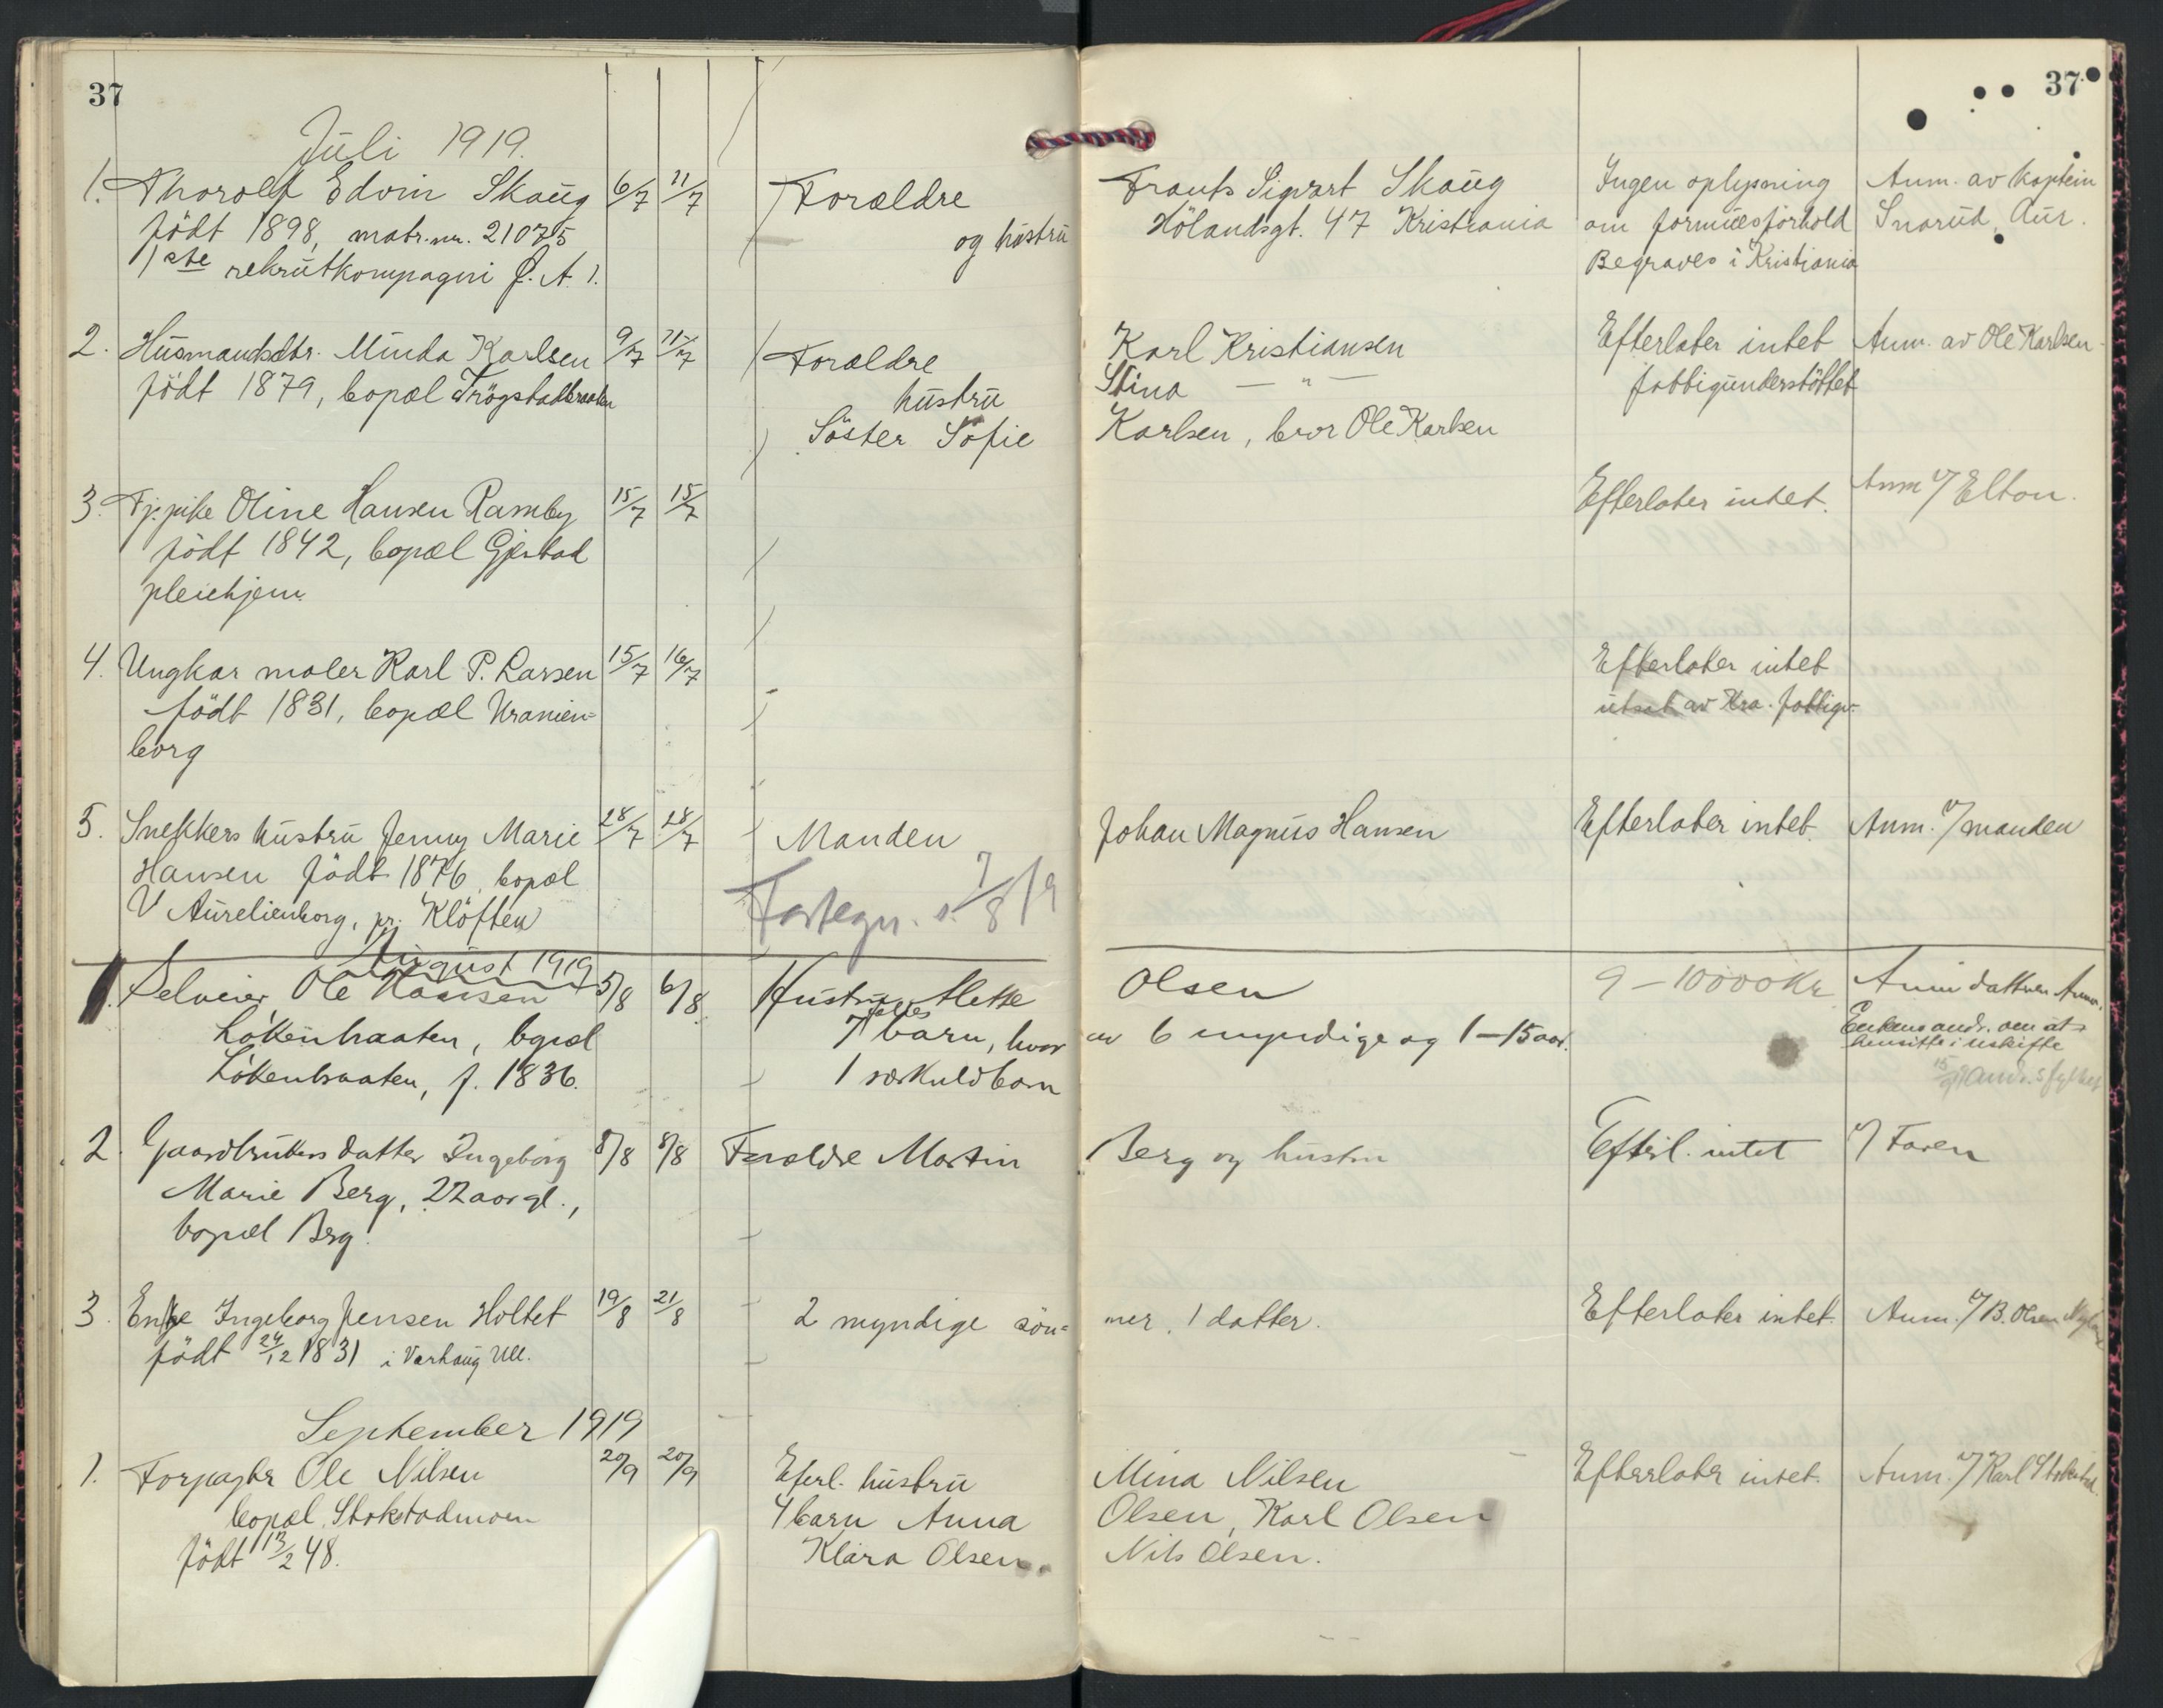 37
37
Juli 1919.
1. Thorolf Edvin Skaug 6/7 11/7 Forældre Frants Sigvart Skaug Ingen oplysning Anm. av kaptein
født 1898, matr. nr. 21075 og hustru Hölandsgt. 47 Kristiania om formuesforhold Snarud, Aur.
1ste rekrutkompagni J. A. 1. Begraves i Kristiania
2. Husmandsdtr. Minda Karlsen 9/7 11/7 Forældre Karl Kristiansen Efterlater intet Anm. av Ole Karlsen
født 1879, bopæl Trögstadbraaten hustru Stina — " — fattigunderstöttet
Söster Sofie Karlsen, bror Ole Karlsen
3. Fj. pike Oline Hansen Ramby 15/7 15/7 Efterlater intet. Anm v/ Elton.
født 1842, bopæl Gjestad
pleiehjem.
4. Ungkar maler Karl P. Larsen 15/7 16/7 Efterlater intet
født 1831, bopæl Uranien- utsat av Kra. fattigv.
borg
5. Snekkers hustru Jenny Marie 28/7 28/7 Manden Johan Magnus Hansen Efterlater intet. Anm. v/ manden
Hansen født 1876, bopæl
V Aurelienborg, pr. Klöften
Fortegn. s. 7/8 19
August 1919
1. Selveier Ole Hansen 5/8 6/8 Hustru Mette Olsen 9 – 10000 Kr Anm datteren Anna.
Lökenbraaten, bopæl 7 fælles barn, hvor av 6 myndige og 1 – 15 aar. Enken andr. om at
Lökenbraaten, f. 1836. 1 særkuldbarn hensitte i uskifte
2. Gaardbrukers datter Ingeborg 8/8 8/8 Forældre Martin Berg og hustru Efterl. intet v/ Faren
Marie Berg, 22 aar gl.,
bopæl Berg.
3. Enke Ingeborg Jensen Holtet 19/8 21/8 2 myndige søn- ner, 1 datter. Efterlater intet. Anm. v/ B. Olsen
født 24/12 1831 i Varhaug Ull.
September 1919
1. Forpagter Ole Nilsen 20/9 20/9 Eferl. hustru Mina Nilsen Efterlater intet. Anm. v/ Karl Stokstad.
bopæl Stokstadmoen 4 barn Anna Olsen, Karl Olsen
født 13/2 48. Klara Olsen. Nils Olsen.